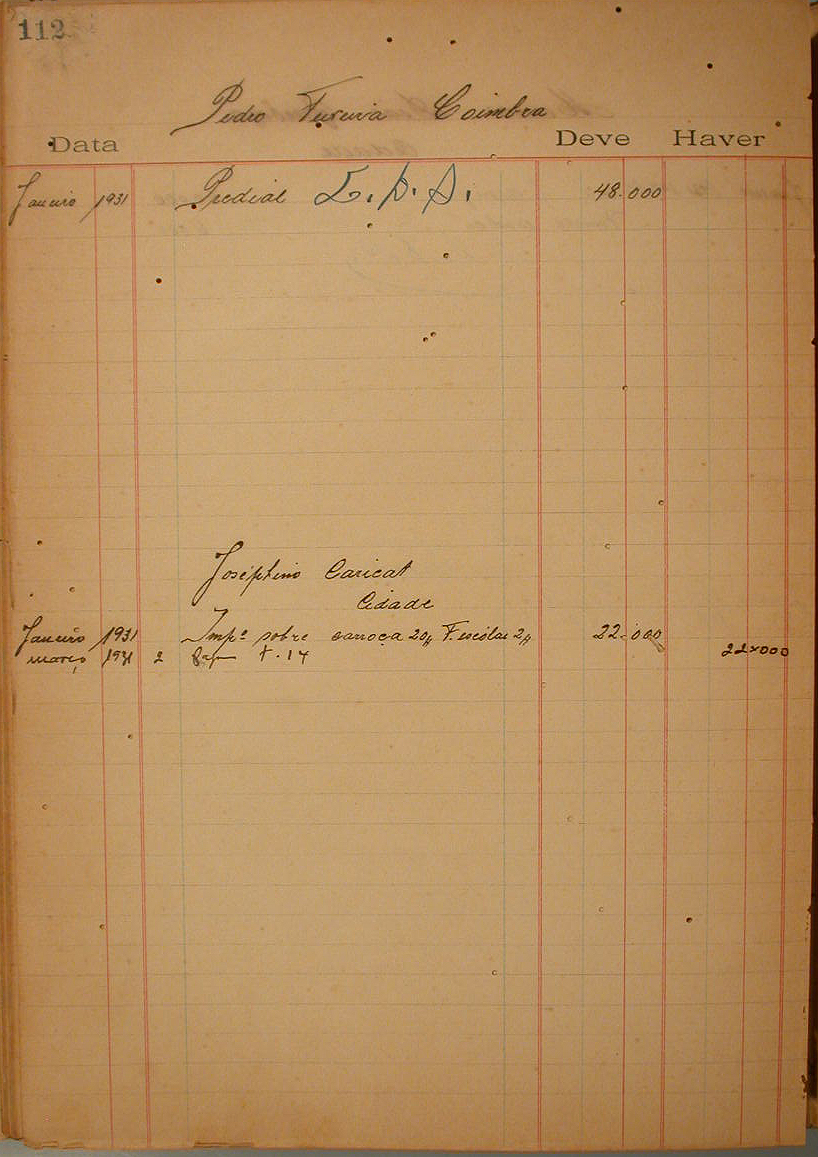 112.
Pedro Coimbra
Data Deve Haver
Janeiro 1931 Predial 48.000
Joséphino Caricat
Cidade
Janeiro 1931 Impº sobre carroça 20$ F. escolar 2$ 22.000
março 1931 2 22×000